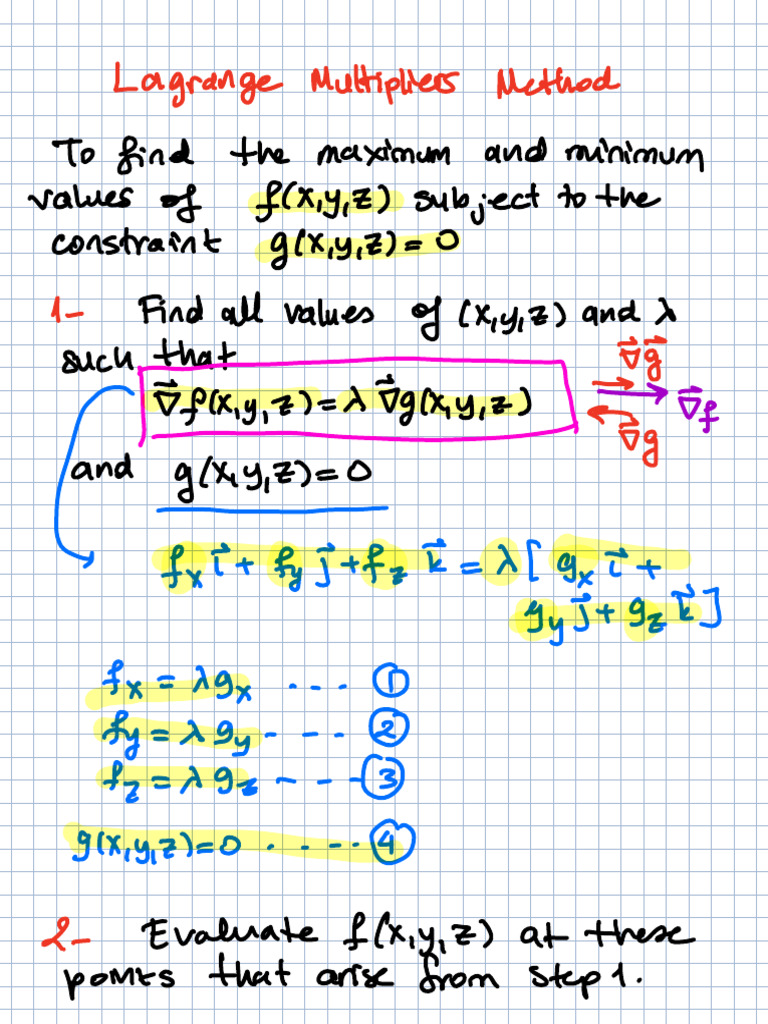 Lagrange Multipliers Method
To find the maximum and minimum
values of f(x,y,z) subject to the
constraint g(x,y,z)=0
1- Find all values of (x,y,z) and λ
such that
∇⃗f(x,y,z)=λ ∇⃗g(x,y,z)
∇⃗g⃗
∇⃗f
∇⃗g
and g(x,y,z)=0
fₓ i⃗ + f_y j⃗ + f_z k⃗ = λ [ gₓ i⃗ +
g_y j⃗ + g_z k⃗ ]
fₓ = λgₓ ---- ①
f_y = λ g_y ---- ②
f_z = λ g_z ---- ③
g(x,y,z)=0 ----- ④
2- Evaluate f(x,y,z) at these
points that arise from step 1.